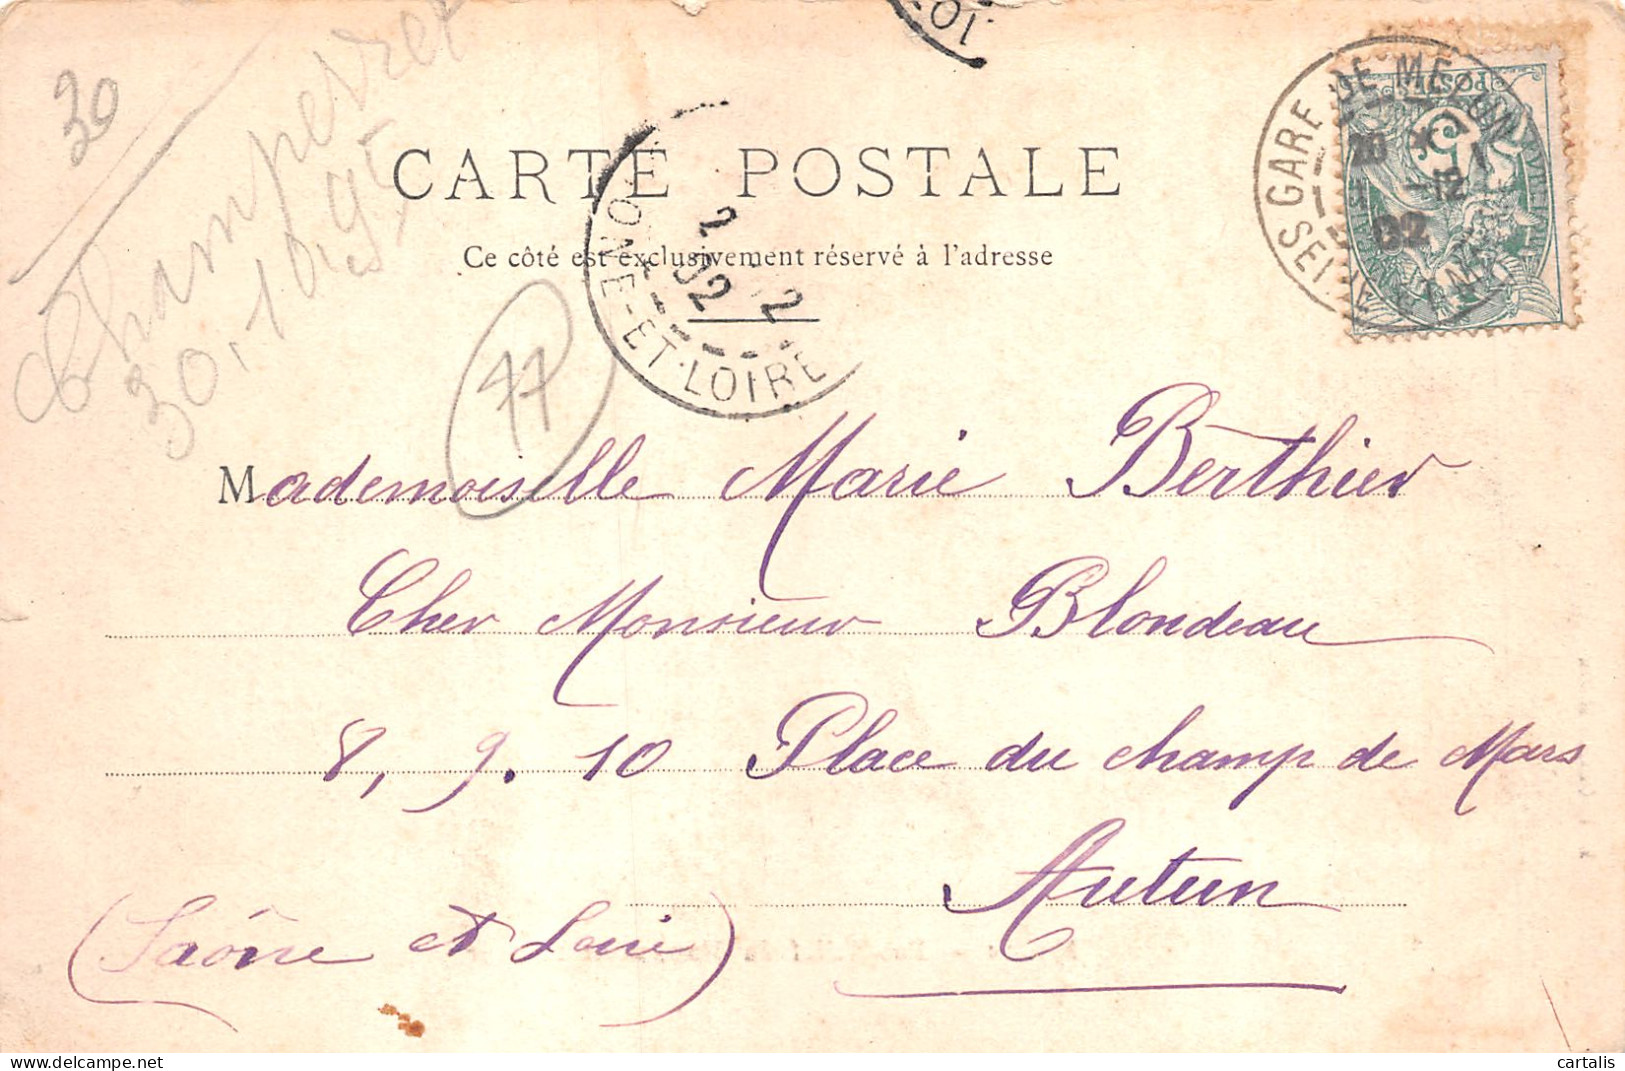 30
Champerret
30.10.95
77
CARTE POSTALE
Ce côté est exclusivement réservé à l'adresse
GARE DE MELUN
1 -12
02
SEINE-ET-MARNE
POSTES
5
2 -2
02
ONE-ET-LOIRE
LOI
Mademoiselle Marie Berthier
Cher Monsieur Blondeau
8, 9. 10 Place du champ de Mars
Autun
(Saône et Loire)
cartalis